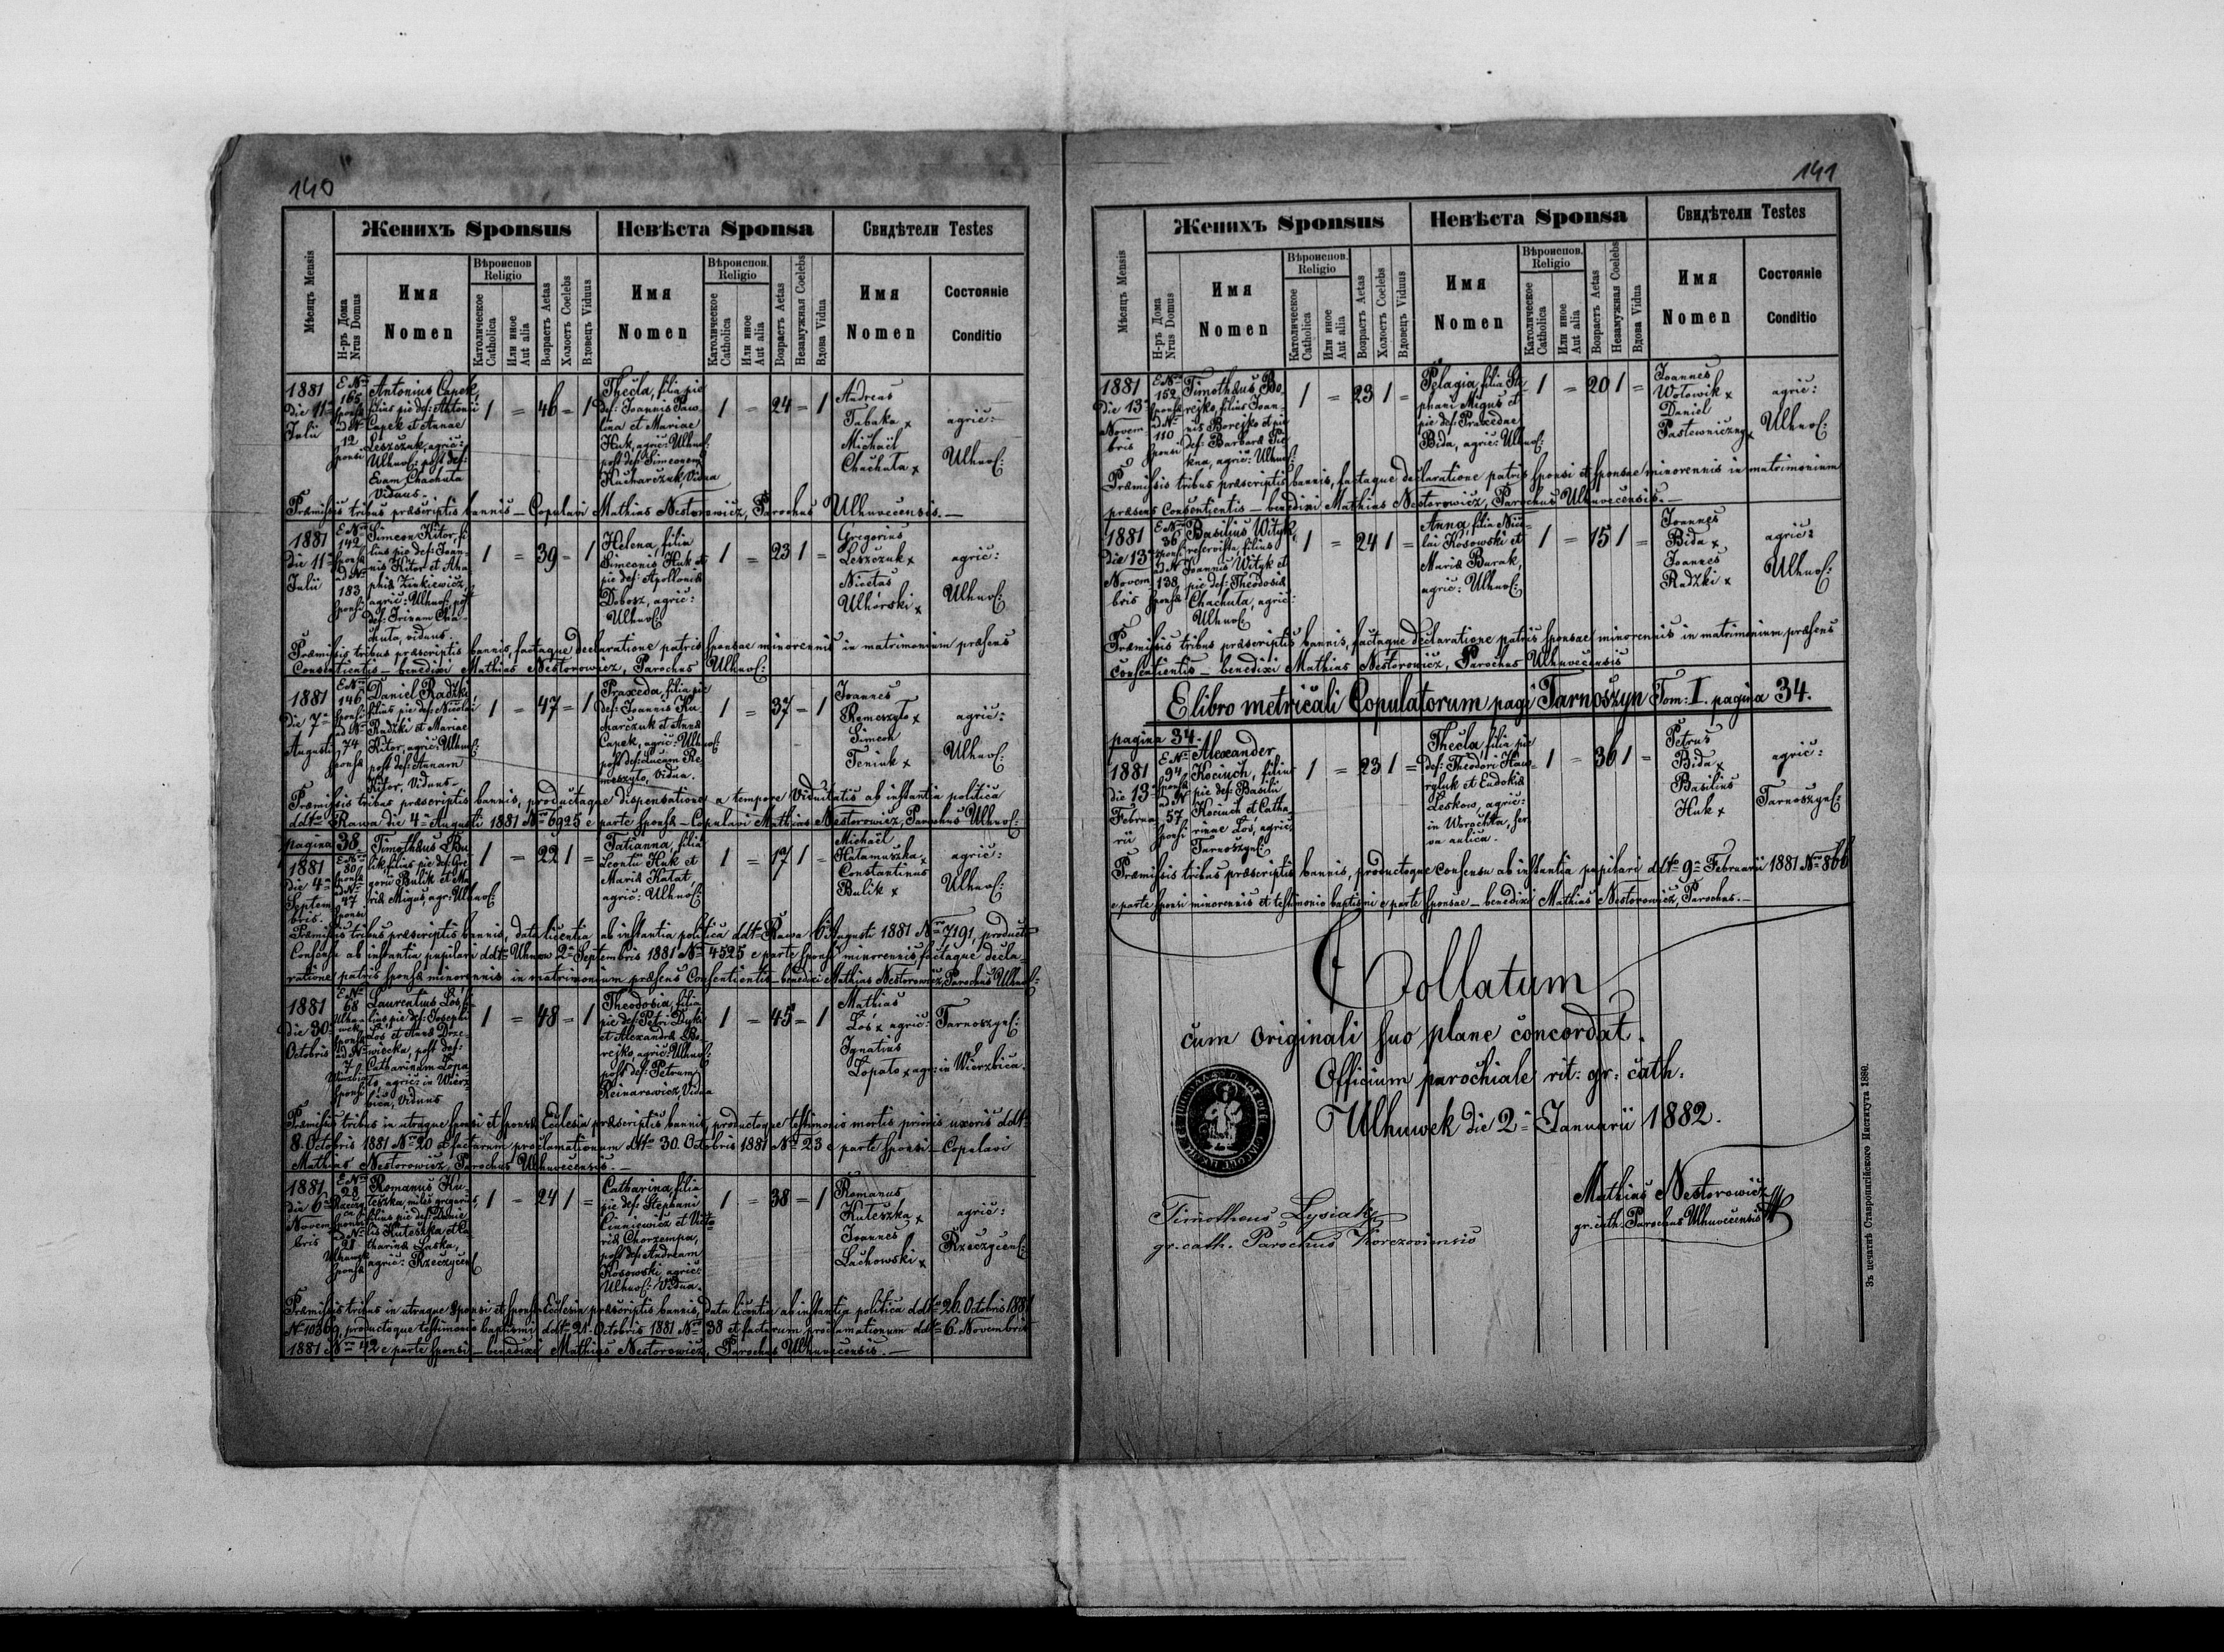 140
Женихъ Sponsus
Невѣста Sponsa
Свидѣтели Testes
Мѣсяцъ Mensis
Н-ръ Дома
Nrus Domus
Имя
Nomen
Вѣроиспов.
Religio
Католическое
Catholica
Или иное
Aut alia
Возрастъ Aetas
Холостъ Coelebs
Вдовецъ Viduus
Имя
Nomen
Вѣроиспов.
Religio
Католическое
Catholica
Или иное
Aut alia
Возрастъ Aetas
Незамужная Coelebs
Вдова Vidua
Имя
Nomen
Состояніе
Conditio
1881
Die 11a
Julii
E Nro
165
sponsæ
ad Nr
12
sponsi
Antonius Capek,
filius pie def: Antonii
Capek et Annae
Leszczuk, agric:
Ulhnof: post def:
Evam Chachuta
Viduus
1 = 46 = 1
Thecla, filia pie
def: Joannis Paw-
lina et Mariae
Huk, agric: Ulhnof:
post def: Simeonem
Kucharczuk, Vidua
1 = 24 = 1
Andreas
Tabaka x
Michaël
Chachuta x
agric:
Ulhnof:
Præmissis tribus præscriptis bannis – Copulavi Mathias Nestorowicz, Parochus Ulhuvecensis. –
1881
Die 11a
Julii
E Nro
142
sponsæ
ad Nr
183
sponsi
Simeon Kitor, fi-
lius pie def: Joan-
nis Kitor et Aha-
phiæ Zinkiewicz,
agric: Ulhnof: post
def: Irinam Cha-
chuta, viduus.
1 = 39 = 1
Helena, filia
Simeonis Huk et
pie def: Apolloniæ
Dobosz, agric:
Ulhnof:
1 = 23 1 =
Gregorius
Leszczuk x
Nicetas
Ulhórski x
agric:
Ulhnof:
Præmissis tribus præscriptis bannis, factaque declaratione patris sponsae minorennis in matrimonium præsens
Consentientis – benedixi Mathias Nestorowicz, Parochus Ulhnof:
1881
Die 7a
Augusti
E Nro
146
sponsi
ad Nr
74
sponsæ
Daniel Radzki,
filius pie def: Nicolai
Radzki et Mariae
Kitor, agric: Ulhnof:
post def: Annam
Kitor, Viduus –
1 = 47 = 1
Praxeda, filia pie
def: Joannis Ku-
charczuk et Annæ
Capek, agric: Ulhnof:
post def: Lucam Re-
meszyło, Vidua.
1 = 37 = 1
Joannes
Remeszyło x
Simeon
Feniuk x
agric:
Ulhnof:
Præmissis tribus præscriptis bannis, productaque dispensatione a tempore Viduitatis ab instantia politica
ddto Rawa die 4a Augusti 1881 Nro 6925 e parte sponsæ – Copulavi Mathias Nestorowicz, Parochus Ulhnof:
pagina 38.
1881
die 4a
Septem
bris.
E Nro
80
sponsæ
ad Nr
47
sponsi
Timothæus Bu-
lik, filius pie def: Gre-
gorii Bulik et Ma-
riæ Migus, agr: Ulhnof:
1 = 22 1 =
Tatianna, filia
Leontii Huk et
Mariæ Hatat,
agric: Ulhnof:
1 = 17 1 =
Michaël
Hatamuszka x
Constantinus
Bulik x
agric:
Ulhnof:
Præmissis tribus præscriptis bannis, data licentia ab instantia politica ddto Rawa 6a Augusti 1881 Nro 7191, producto
Consensu ab instantia pupilari ddto Uhnow 2a Septembris 1881 Nro 4525 e parte sponsi minorennis, factaque decla-
ratione patris sponsæ minorennis in matrimonium præsens Consentientis – benedixi Mathias Nestorowicz, Parochus Ulhnof:
1881
Die 30a
Octobris
E Nro
68
Ulhu-
wek
sponsæ
ad Nr
7
Wierzbica
sponsi
Laurentius Łoś, fi-
lius pie def: Josephi
Łoś et Annæ Drze-
wiecka, post def:
Catharinam Łopa-
to, agric: in Wierz-
bica, Viduus
1 = 48 = 1
Theodosia, filia
pie def: Petri Dyki
et Alexandræ Bo-
rejko, agric: Ulhnof:
post def: Petrum
Keinarowicz, Vidua
1 = 45 = 1
Mathias
Łoś x agric: Tarnoszynf:
Ignatius
Łopato x agr: in Wierzbica.
Præmissis tribus in utraque sponsi et sponsæ Ecclesia præscriptis bannis, productoque testimonio mortis prioris uxoris ddto
8. Octobris 1881 Nro 20 et factarum proclamationum ddto 30. Octobris 1881 Nro 23 e parte sponsi – Copulavi
Mathias Nestorowicz, Parochus Ulhuvecensis. –
1881
die 6a
Novem
bris
E Nro
28
Rzeczy
ca
sponsi
ad Nr
21
Ulhuwek
sponsæ
Romanus Ku-
teszka, miles gregarius,
filius pie def: Danie-
lis Kuteszka et Ca-
tharinæ Laska,
agric: Rzeczycenf:
1 = 24 1 =
Catharina, filia
pie def: Stephani
Cinniewicz et Victo-
riæ Chorzempa,
post def: Andream
Kosowski, agric:
Ulhnof: Vidua
1 = 38 = 1
Romanus
Kuteszka x
Joannes
Lachowski x
agric:
Rzeczycenf:
Præmissis tribus in utraque sponsi et sponsæ Ecclesia præscriptis bannis, data licentia ab instantia politica ddto 26. Octobris 1881
Nro 10369, productoque testimonio baptismi ddto 21. Octobris 1881 Nro 38 et factarum proclamationum ddto 6. Novembris
1881 Nro 42 e parte sponsi – benedixi Mathias Nestorowicz, Parochus Ulhuvecensis. –
141
Женихъ Sponsus
Невѣста Sponsa
Свидѣтели Testes
Мѣсяцъ Mensis
Н-ръ Дома
Nrus Domus
Имя
Nomen
Вѣроиспов.
Religio
Католическое
Catholica
Или иное
Aut alia
Возрастъ Aetas
Холостъ Coelebs
Вдовецъ Viduus
Имя
Nomen
Вѣроиспов.
Religio
Католическое
Catholica
Или иное
Aut alia
Возрастъ Aetas
Незамужная Coelebs
Вдова Vidua
Имя
Nomen
Состояніе
Conditio
1881
Die 13a
Novem
bris
E Nro
152
sponsæ
ad Nr
110
sponsi
Timothæus Bo-
rejko, filius Joan-
nis Borejko et pie
def: Barbaræ Pie-
kna, agric: Ulhnof:
1 = 23 1 =
Pelagia, filia Ste-
phani Migus et
pie def: Praxedae
Bida, agric: Ulhnof:
1 = 20 1 =
Joannes
Wołowik x
Daniel
Pastewniczny x
agric:
Ulhnof:
Præmissis tribus præscriptis bannis, factaque declaratione patris sponsi et sponsae minorennis in matrimonium
præsens Consentientis – benedixi Mathias Nestorowicz, Parochus Ulhuvecensis. –
1881
Die 13a
Novem
bris
E Nro
36
sponsi
ad Nr
138
sponsæ
Basilius Wityk,
reservista, filius
Joannis Wityk et
pie def: Theodosiæ
Chachuta, agric:
Ulhnof:
1 = 24 1 =
Anna, filia Nico-
lai Kosowski et
Mariæ Burak,
agric: Ulhnof:
1 = 15 1 =
Joannes
Bida x
Joannes
Radzki x
agric:
Ulhnof:
Præmissis tribus præscriptis bannis, factaque declaratione patris sponsae minorennis in matrimonium præsens
Consentientis – benedixi Mathias Nestorowicz, Parochus Ulhuvecensis
E libro metricali Copulatorum pagi Tarnoszyn Tom: I. pagina 34.
pagina 34.
1881
die 13a
Februa
rii
E Nro
94
sponsæ
ad Nr
57
sponsi
Alexander
Kociuch, filius
pie def: Basilii
Kociuch et Catha-
rinae Łoś, agric:
Tarnoszynf:
1 = 23 1 =
Thecla, filia pie
def: Theodori Haw-
ryluk et Eudokiæ
Leskow, agric:
in Worochta, ser-
va aulica.
1 = 36 1 =
Petrus
Bida x
Basilius
Huk x
agric:
Tarnoszynf:
Præmissis tribus præscriptis bannis, productoque consensu ab instantia pupilari ddto 9a Februarii 1881 Nro 866
e parte sponsi minorennis et testimonio baptismi e parte sponsae – benedixi Mathias Nestorowicz, Parochus. –
Collatum
cum originali suo plane concordat.
Officium parochiale rit: gr: cath:
Ulhuwek die 2a Januarii 1882.
Mathias Nestorowicz
gr. cath. Parochus Ulhuvecensis
Timotheus Lysiak
gr. cath. Parochus Korczoviensis
Зъ печатнѣ Ставропигійского Института 1880.